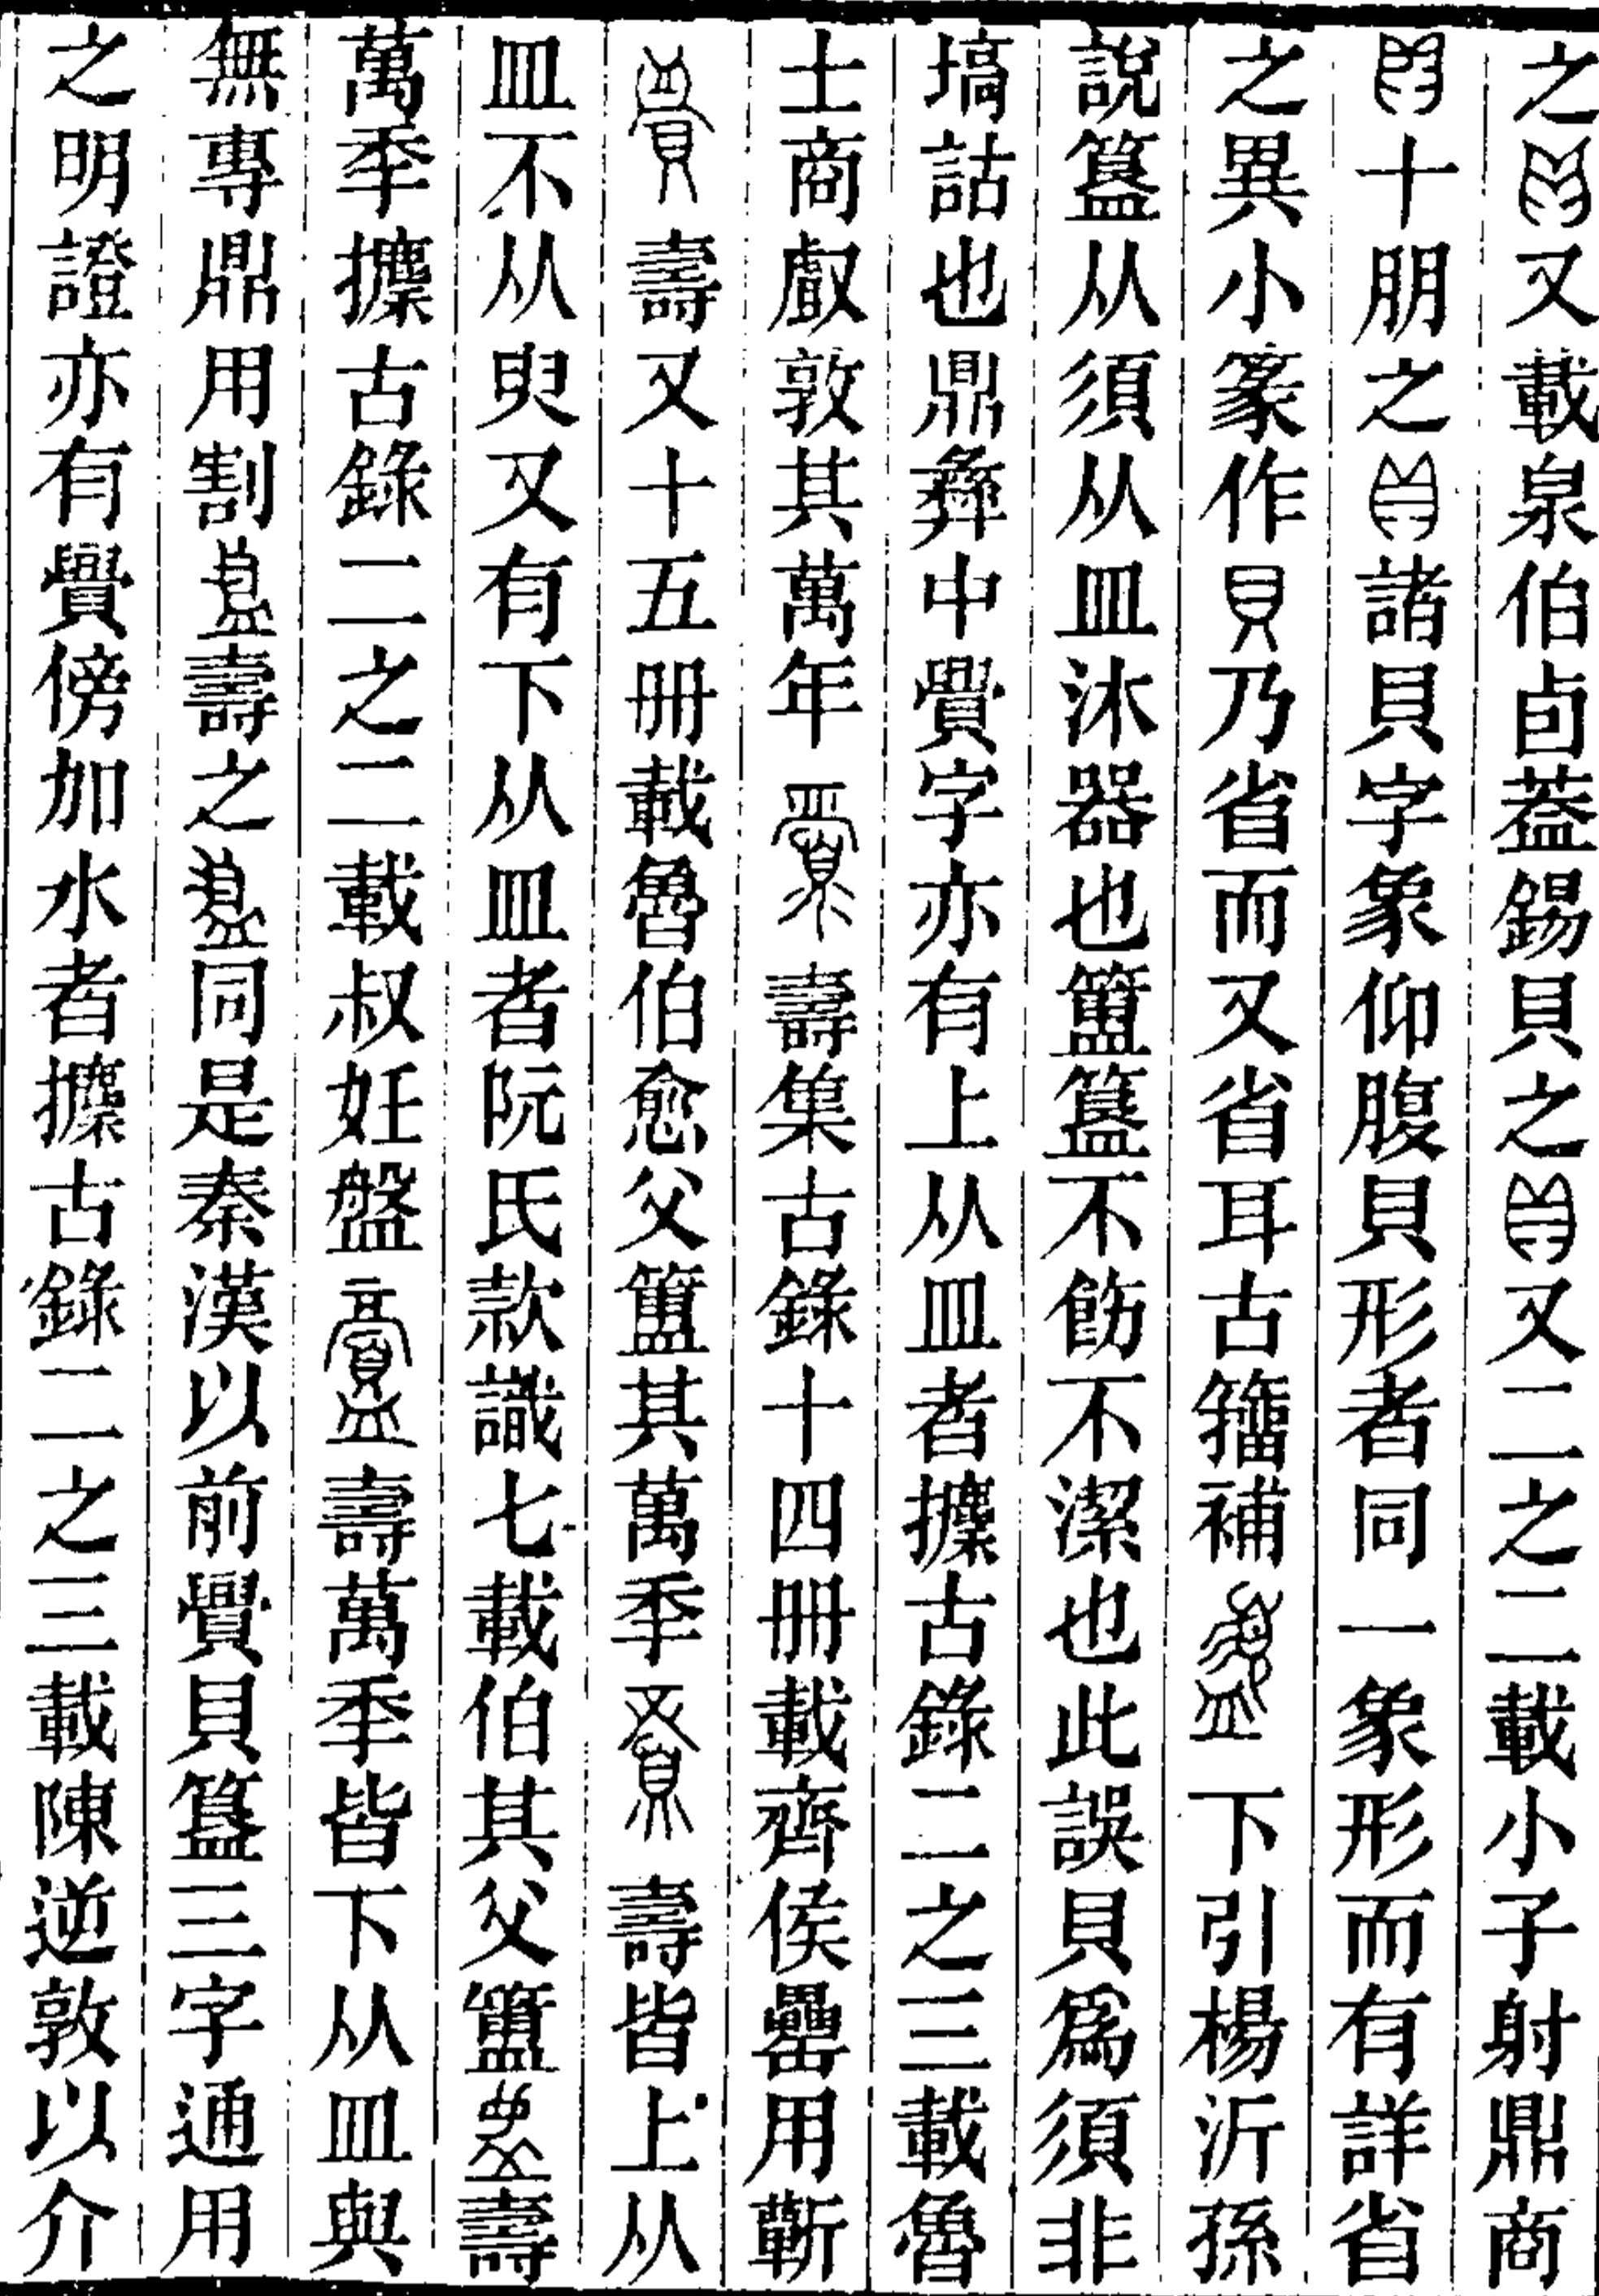 之又載泉伯卣葢錫貝之又二之二載小子射鼎商
十朋之諸貝字象仰腹貝形者同一象形而有詳省
之異小篆作貝乃省而又省耳古籀補下引楊沂孫
說簋从須从皿沐器也簠簋不飭不潔也此誤貝爲須非
塙詁也鼎彝中釁字亦有上从皿者攗古錄二之三載魯
士商䖒敦其萬年壽集古錄十四冊載齊侯罍用蘄
壽又十五冊載魯伯愈父簠其萬秊壽皆上从
皿不从臾又有下从皿者阮氏款識七載伯其父簠壽
萬秊攗古錄二之二載叔妊盤壽萬秊皆下从皿與
無專鼎用割壽之同是秦漢以前釁貝簋三字通用
之明證亦有釁傍加水者攗古錄二之三載陳逆敦以介